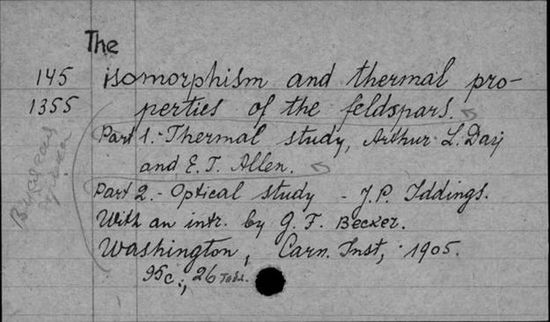 The
145 isomorphism and thermal pro-
1355 perties of the feldspars.
Part 1.- Thermal study, Arthur L. Day
and E. T. Allen.
Part 2.- Optical study - J.P. Iddings.
With an intr. by G. F. Becker.
Washington, Carn. Inst, 1905.
95c., 26 Tabl.